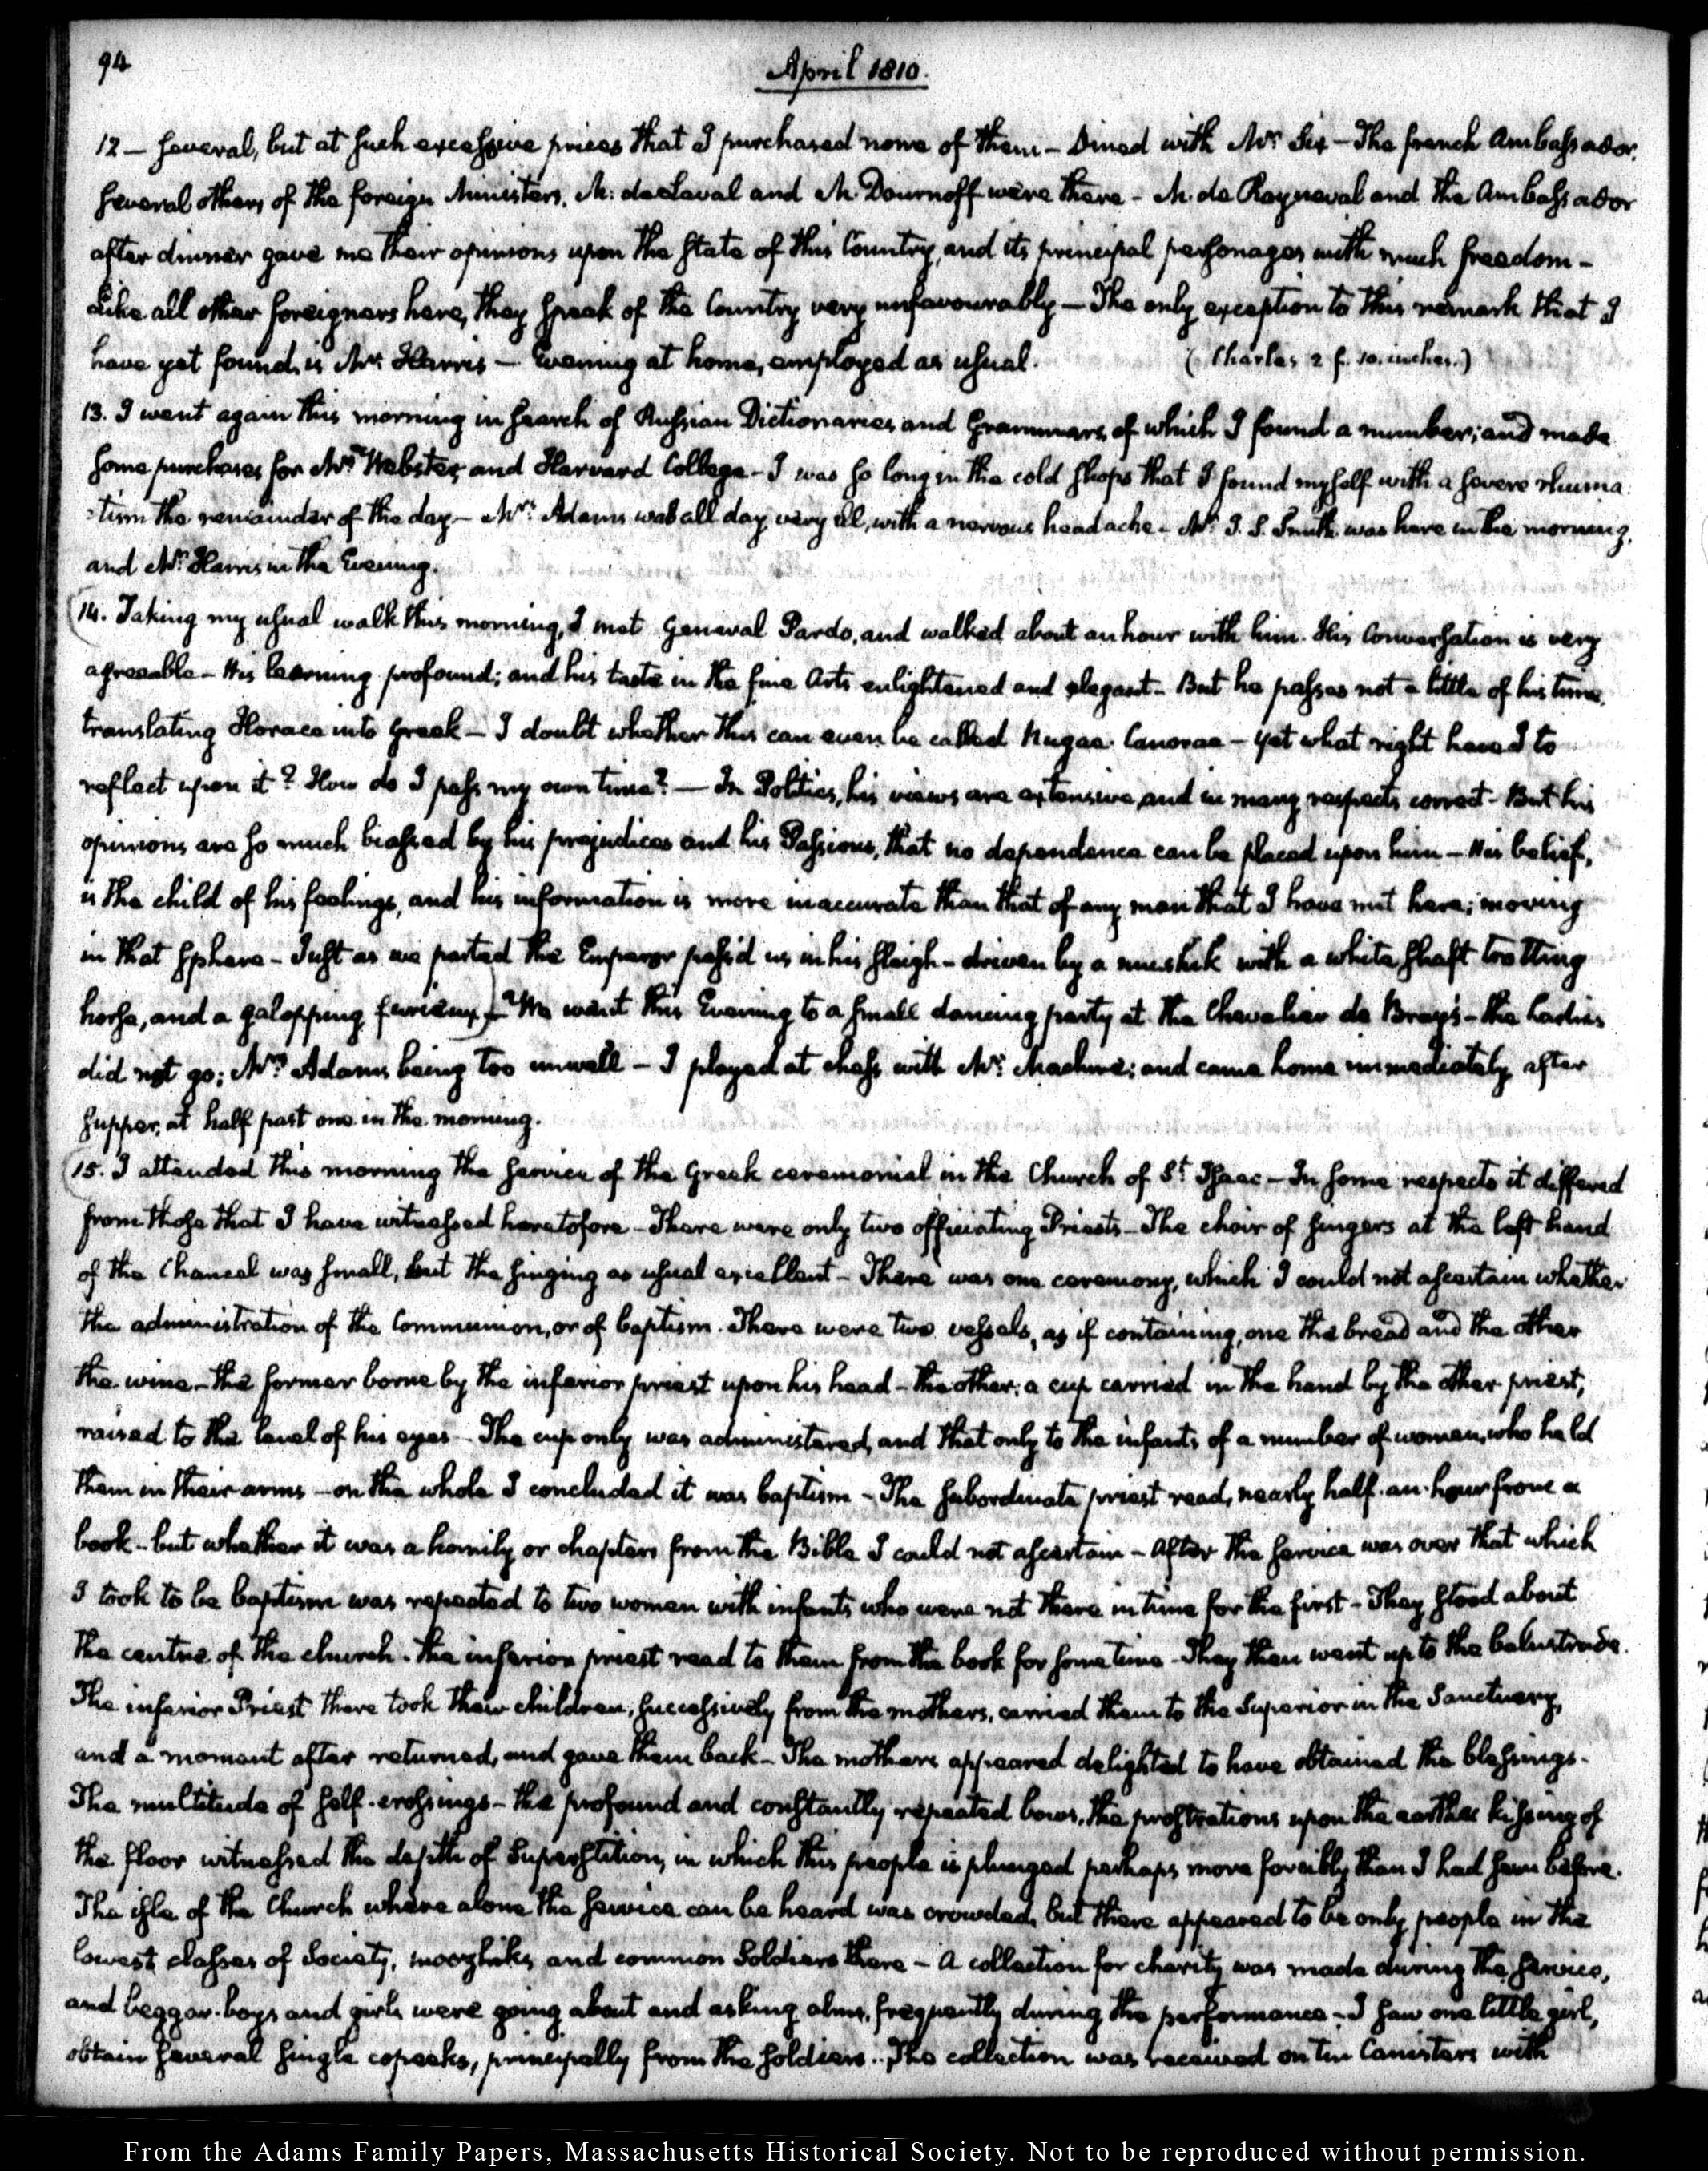 94
April 1810.
12 — several, but at such excessive prices that I purchased none of them — Dined with Mr: Six — The french Ambassador,
several others of the foreign Ministers, M: de Laval and M. Dournoff were there — M. de Rayneval and the Ambassador
after dinner gave me their opinions upon the State of this Country, and its principal personages with much freedom —
Like all other foreigners here, they speak of the Country very unfavourably — The only exception to this remark that I
have yet found, is Mr: Harris — Evening at home, employed as usual. (Charles 2 f. 10. inches.)
13. I went again this morning in search of Russian Dictionaries and Grammars, of which I found a number; and made
some purchases for Mr: Webster, and Harvard College — I was so long in the cold shops that I found myself with a severe rheuma:
:tism the remainder of the day — Mrs: Adams was all day very ill, with a nervous head ache — Mr. J. S. Smith was here in the morning,
and Mr: Harris in the Evening.
(14. Taking my usual walk this morning, I met General Pardo, and walked about an hour with him. His Conversation is very
agreeable — His learning profound; and his taste in the fine Arts enlightened and elegant — But he passes not a little of his time,
translating Horace into Greek — I doubt whether this can even be called Nugae Canorae — yet what right have I to
reflect upon it? How do I pass my own time? — In Politics, his views are extensive, and in many respects correct — But his
opinions are so much biassed by his prejudices and his Passions, that no dependence can be placed upon him — His belief,
is the child of his feelings, and his information is more inaccurate than that of any man that I have met here; moving
in that Sphere — Just as we parted the Emperor pass'd us in his sleigh — driven by a mushik with a white shaft trotting
horse, and a galopping — We went this Evening to a small dancing party at the Chevalier de Bray's — the Ladies
did not go; Mrs: Adams being too unwell — I played at chess with Mr: and came home immediately after
supper, at half past one in the morning.
(15. I attended this morning the service of the Greek ceremonial in the Church of St. Isaac — In some respects it differed
from those that I have witnessed heretofore — There were only two officiating Priests — The choir of singers at the left hand
of the Chancel was small, but the singing as usual excellent — There was one ceremony, which I could not ascertain whether
the administration of the Communion, or of baptism. There were two vessels, as if containing, one the bread and the other
the wine — the former borne by the inferior priest upon his head — the other; a cup carried in the hand by the other priest,
raised to the level of his eyes — The cup only was administered, and that only to the infants of a number of women, who held
them in their arms — on the whole I concluded it was baptism — The subordinate priest read, nearly half-an-hour from a
book — but whether it was a homily or chapters from the Bible I could not ascertain — After the service was over that which
I took to be baptism was repeated to two women with infants who were not there in time for the first — They stood about
the centre of the church. the inferior priest read to them from the book for some time — They then went up to the balustrade.
The inferior Priest there took their children, successively from the mothers, carried them to the Superior in the Sanctuary,
and a moment after returned, and gave them back — The mothers appeared delighted to have obtained the blessings —
The multitude of self-crossings — the profound and constantly repeated bows, the prostrations upon the earth kissing of
the floor witnessed the depth of Superstition, in which this people is plunged perhaps more forcibly than I had seen before.
The isle of the Church where alone the service can be heard was crowded, but there appeared to be only people in the
lowest classes of Society, and common Soldiers there — A collection for charity was made during the service,
and beggar-boys and girls were going about and asking alms, frequently during the performance — I saw one little girl,
obtain several single copecks, principally from the soldiers. The collection was received on tin Canisters with
From the Adams Family Papers, Massachusetts Historical Society. Not to be reproduced without permission.